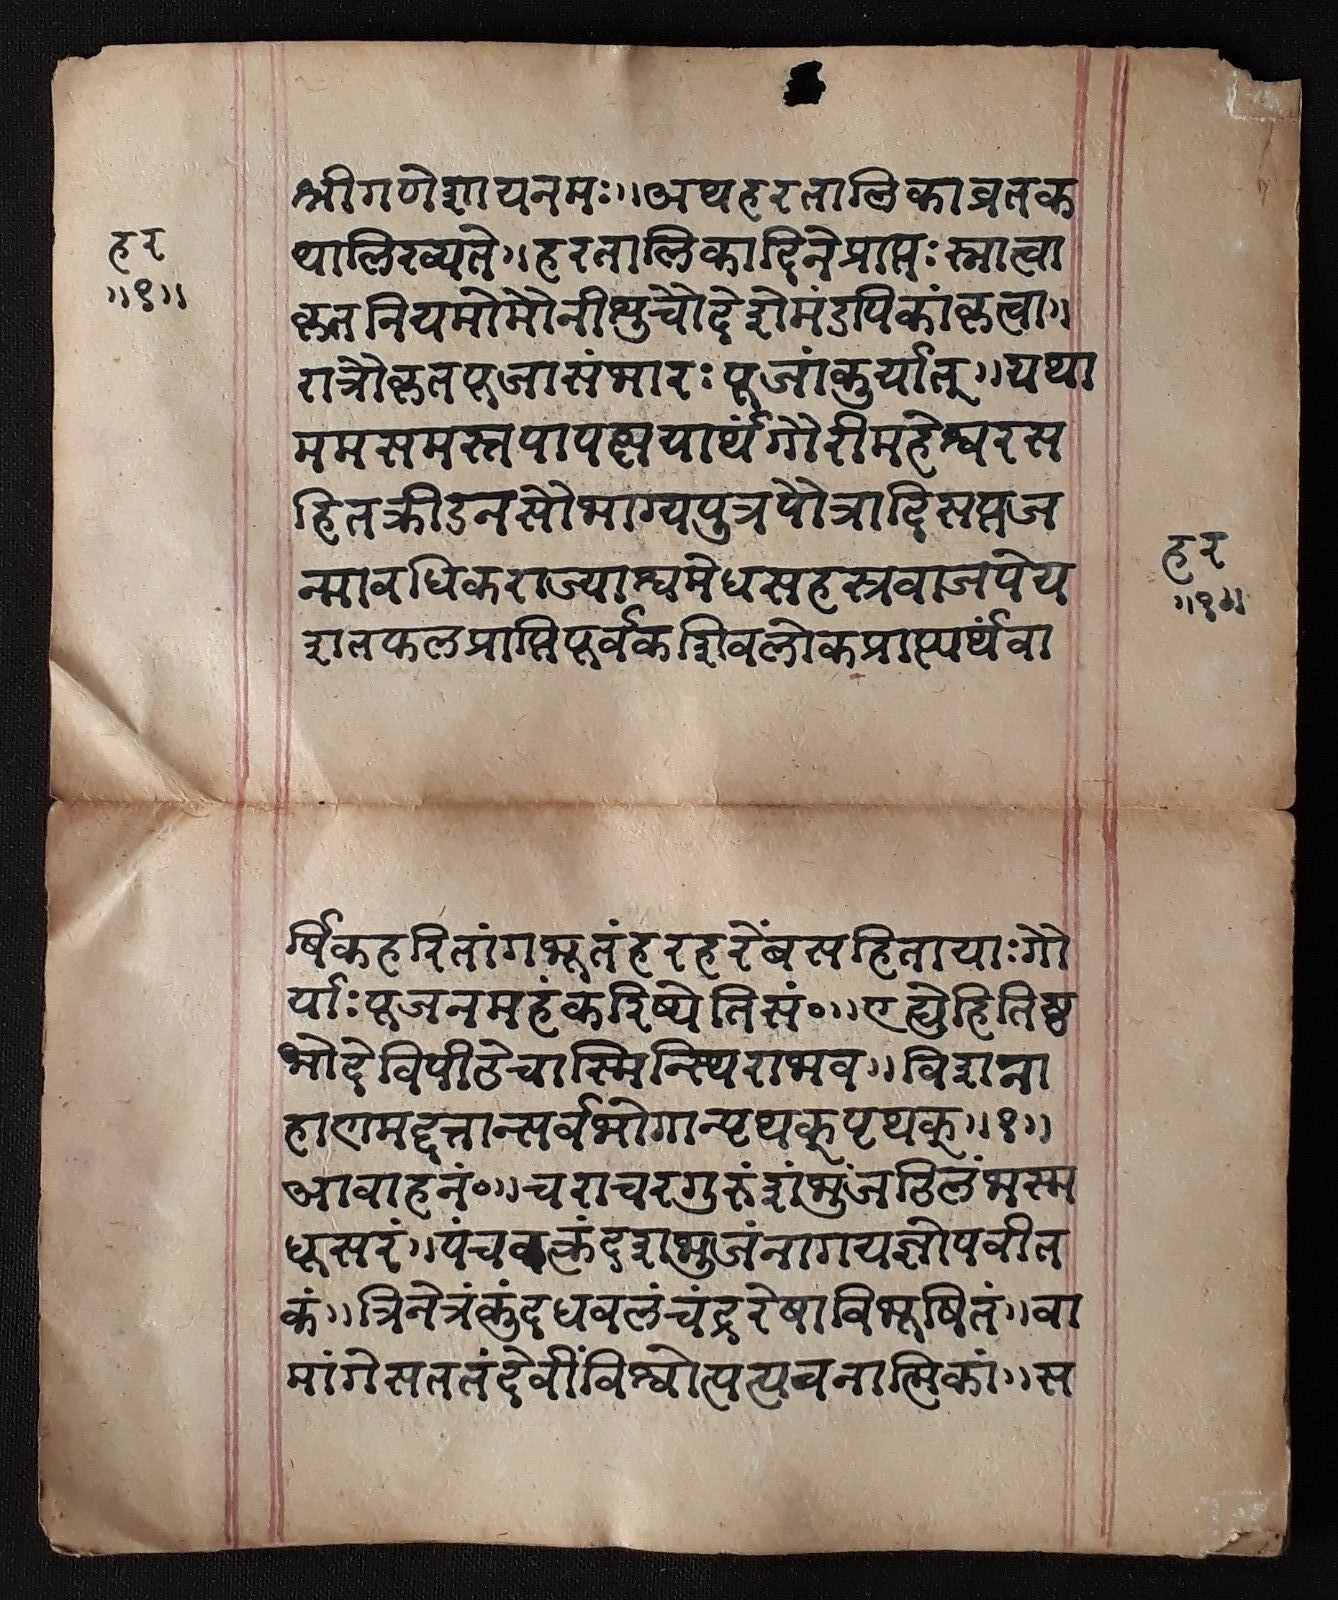 श्रीगणेशायनमः॥अथहरतालिकाव्रतक
थालिख्यते॥हरतालिकादिनेप्राप्तःस्नात्वा
हर
॥१॥
कृतनियमोमौनीशुचौदेशेमंडपिकांकृत्वा॥
रात्रौकृतपूजासंभारःपूजांकुर्यात्॥यथा
ममसमस्तपापक्षयार्थंगौरीमहेश्वरस
हितक्रीडनसौभाग्यपुत्रपौत्रादिसप्तज
न्मावधिकराज्याश्वमेधसहस्रवाजपेय
हर
॥१॥
शतफलप्राप्तिपूर्वकशिवलोकप्राप्त्यर्थंवा
र्षिकहरितांगभूतंहरहरेंबसहितायाःगौ
र्याःपूजनमहंकरिष्येतिसं॰॥एह्येहितिष्ठ
भोदेविपीठेचास्मिन्स्थिराभव॥विशाना
हाणमद्दत्तान्सर्वभोगान्पृथक्पृथक्॥१॥
आवाहनं॰॥चराचरगुरुंशंभुंजटिलंभस्म
धूसरं॥पंचवक्त्रंदशभुजंनागयज्ञोपवीत
कं॥त्रिनेत्रंकुंदधवलंचंद्ररेषाविभूषितं॥वा
मांगेसततंदेवींविश्वोत्पत्यवनात्मिकां॥स